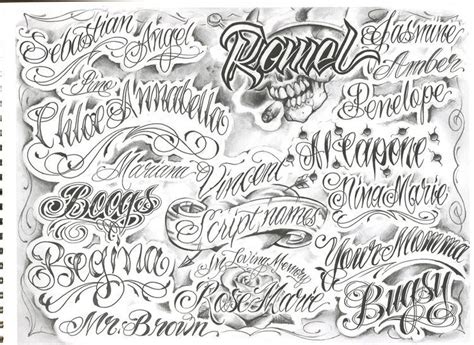 Sebastian
Angel
Ramel
Jasmine
Amber
Pino
Chloe
Annabella
Penelope
Mariane
Vincent
Al Capone
Nina Marie
Booges
Script names
Regina
In Loving Memory
Your Momma
Rose Marie
Bugsy
Mr. Brown